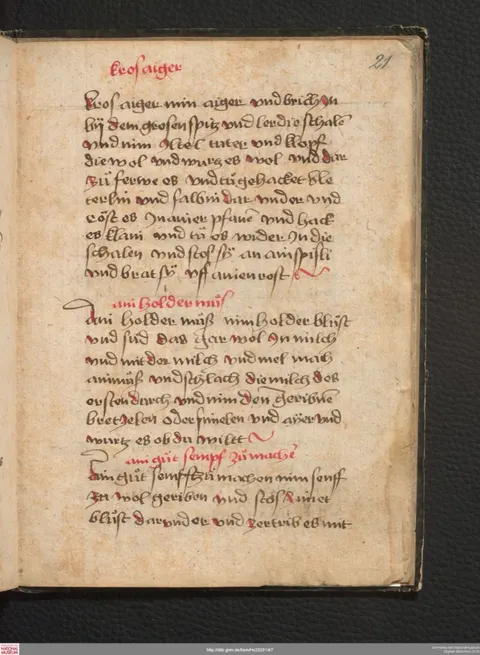 21
kros aiger
kros aiger nim aiger vnd brich In
by dem grosen spitz vnd ler die schale
vnd nim Itel tuter vnd klopf
die wol vnd wurcz es wol vnd dar
zů ferwe es vnd tů gehacket ble
terlin vnd salbin dar vnder vnd
röst es In ainer pfane vnd hack
es klain vnd tů es wider In die
schalen vnd stos sÿ an ain spisli
vnd brat sÿ vff ainen rost
ain holder můs
Ain holder můß nim holder blůst
vnd sůd das gar wol In milch
vnd mit der milch vnd mel mach
ain můß vnd schlach die milch des
ersten durch vnd nim den geribne
bret Zelen oder simelen vnd ayer vnd
wurtz es ob du wiltt
ain gůt sempf zů mache
Ain gůt senff zů machen nim senff
zů wol geriben vnd stos kimet
blůst dar vnder vnd zertrib es mit